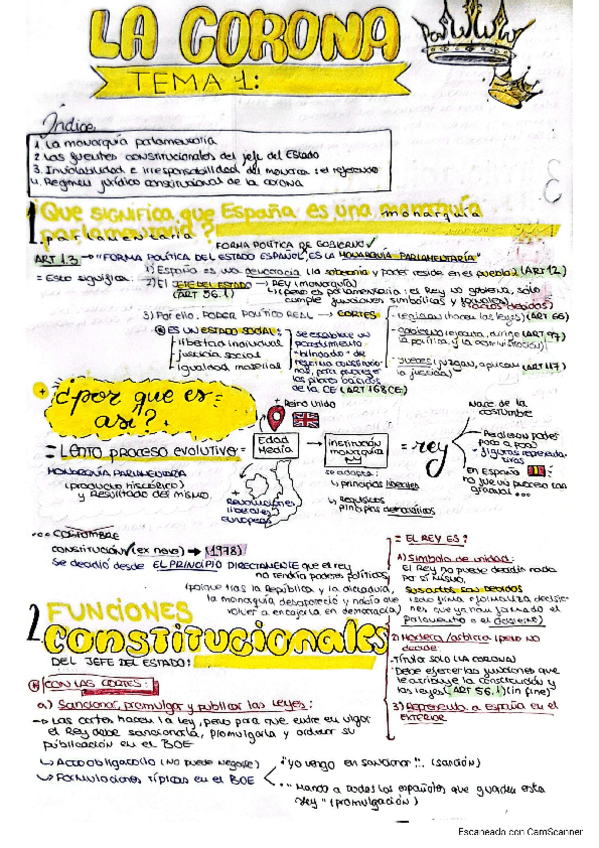 LA CORONA
TEMA 1:
Índice
1. La monarquía parlamentaria
2. Las fuentes constitucionales del jefe del Estado
3. Inviolabilidad e irresponsabilidad del monarca: el refrendo
4. Regimen jurídico constitucional de la corona
1. ¿Que significa que España es una monarquía
parlamentaria?
FORMA POLÍTICA DE GOBIERNO ✓
ART 1.3 → "FORMA POLÍTICA DEL ESTADO ESPAÑOL, ES LA MONARQUÍA PARLAMENTARIA"
= Esto significa:
1) España es una democracia (la soberanía y poder reside en el pueblo) (ART 1.2)
2) El JEFE DEL ESTADO → REY (MONARQUÍA)
(ART 56.1)
(pero es parlamentaria: el Rey no gobierna, solo
cumple funciones simbólicas y formales
(actos debidos)
3) Por ello, PODER POLÍTICO REAL → CORTES
- legislan (hacen las leyes) (ART 66)
- gobierno (ejecuta, dirige (ART 97)
la política, y la administración)
- Jueces (juzgan, aplican (ART 117)
la justicia)
ES UN ESTADO SOCIAL:
libertad individual
justicia social
igualdad material
se establece un
procedimiento
"blindado" de
reforma constitucio-
nal, para proteger
los pilares básicos
de la CE (ART 168 CE)
¿por que es
así?
= LENTO PROCESO EVOLUTIVO =
MONARQUÍA PARLAMENTARIA
(producto histórico)
y resultado del mismo.
+ Reino Unido
Edad
Media
+
Revoluciones
liberales
europeas
institución
monarquía
se adapta:
→ principios liberales
→ requisitos
principios democráticos
= rey
Nace de la
costumbre
- Perdieron poder
poco a poco
- figuras representa-
tivas
en España
no fue un proceso tan
gradual...
... COSTUMBRE
CONSTITUCIÓN ✓ (ex novo) → (1978)
Se decidió desde EL PRINCIPIO DIRECTAMENTE que el rey
no tendría poderes políticos
(porque tras la República y la dictadura,
la monarquía desapareció y había que
volver a encajarla en democracia)
= EL REY ES:
1) Símbolo de unidad:
El Rey no puede decidir nada
por sí mismo,
sus actos son debidos
(solo firma o formaliza decisio-
nes que ya han tomado el
parlamento o el gobierno)
2) Modera/arbitra (pero no
decide)
- Título solo (LA CORONA)
- Debe ejercer las funciones que
le atribuye la constitución y
las leyes (ART 56.1) (in fine)
3) Representa a España en el
EXTERIOR
2. FUNCIONES
CONSTITUCIONALES
DEL JEFE DEL ESTADO:
CON LAS CORTES:
a) Sancionar, promulgar y publicar las leyes:
→ Las cortes hacen la ley, pero para que entre en vigor
el Rey debe sancionarla, promulgarla y ordenar su
publicación en el BOE
↳ Acto obligatorio (no puede negarse)
↳ Formulaciones típicas en el BOE
"yo vengo en sancionar". (sanción)
"Mando a todos los españoles que guarden esta
ley" (promulgación)
Escaneado con CamScanner